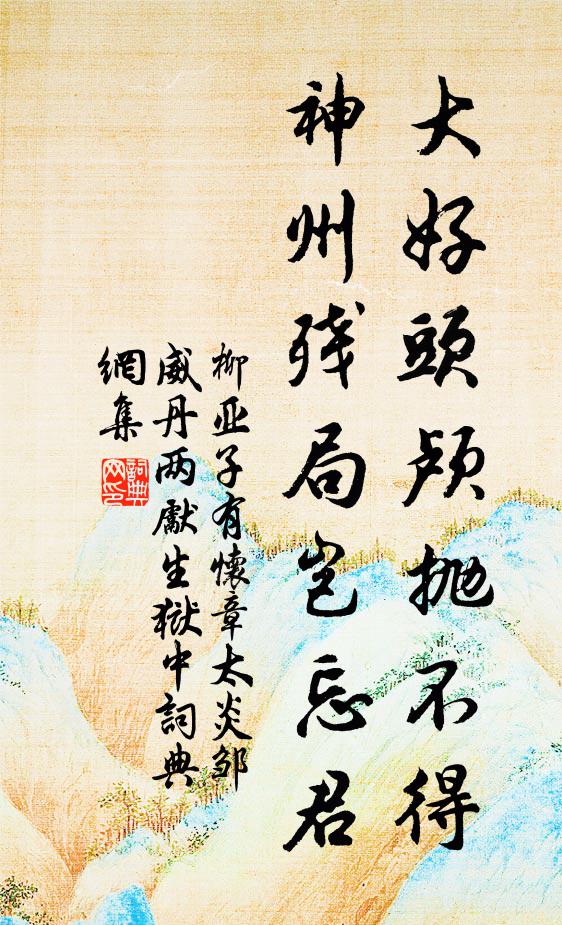 大好頭颅抛不得
神州残局岂忘君
柳亚子有懷章太炎邹
威丹两獻生獄中詞典
網集
詞典
网印